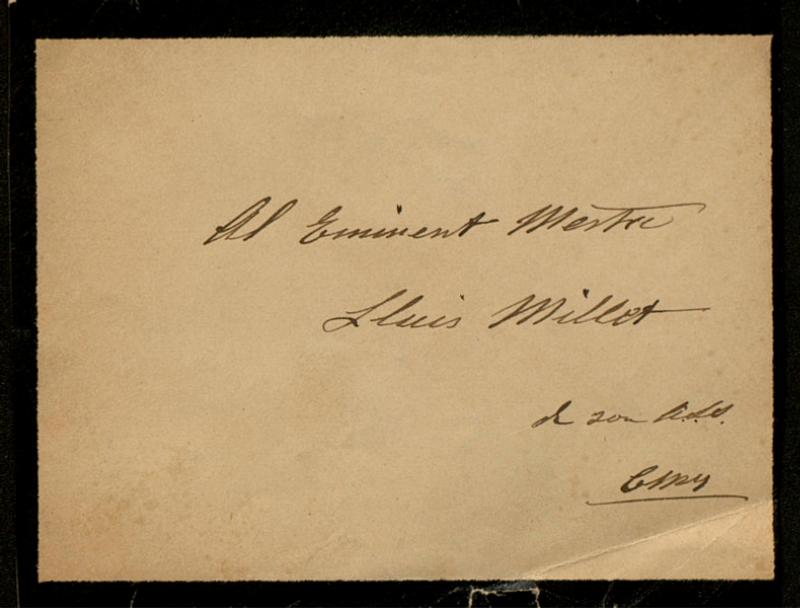 Al Eminent Mestre
Lluis Millet
de son